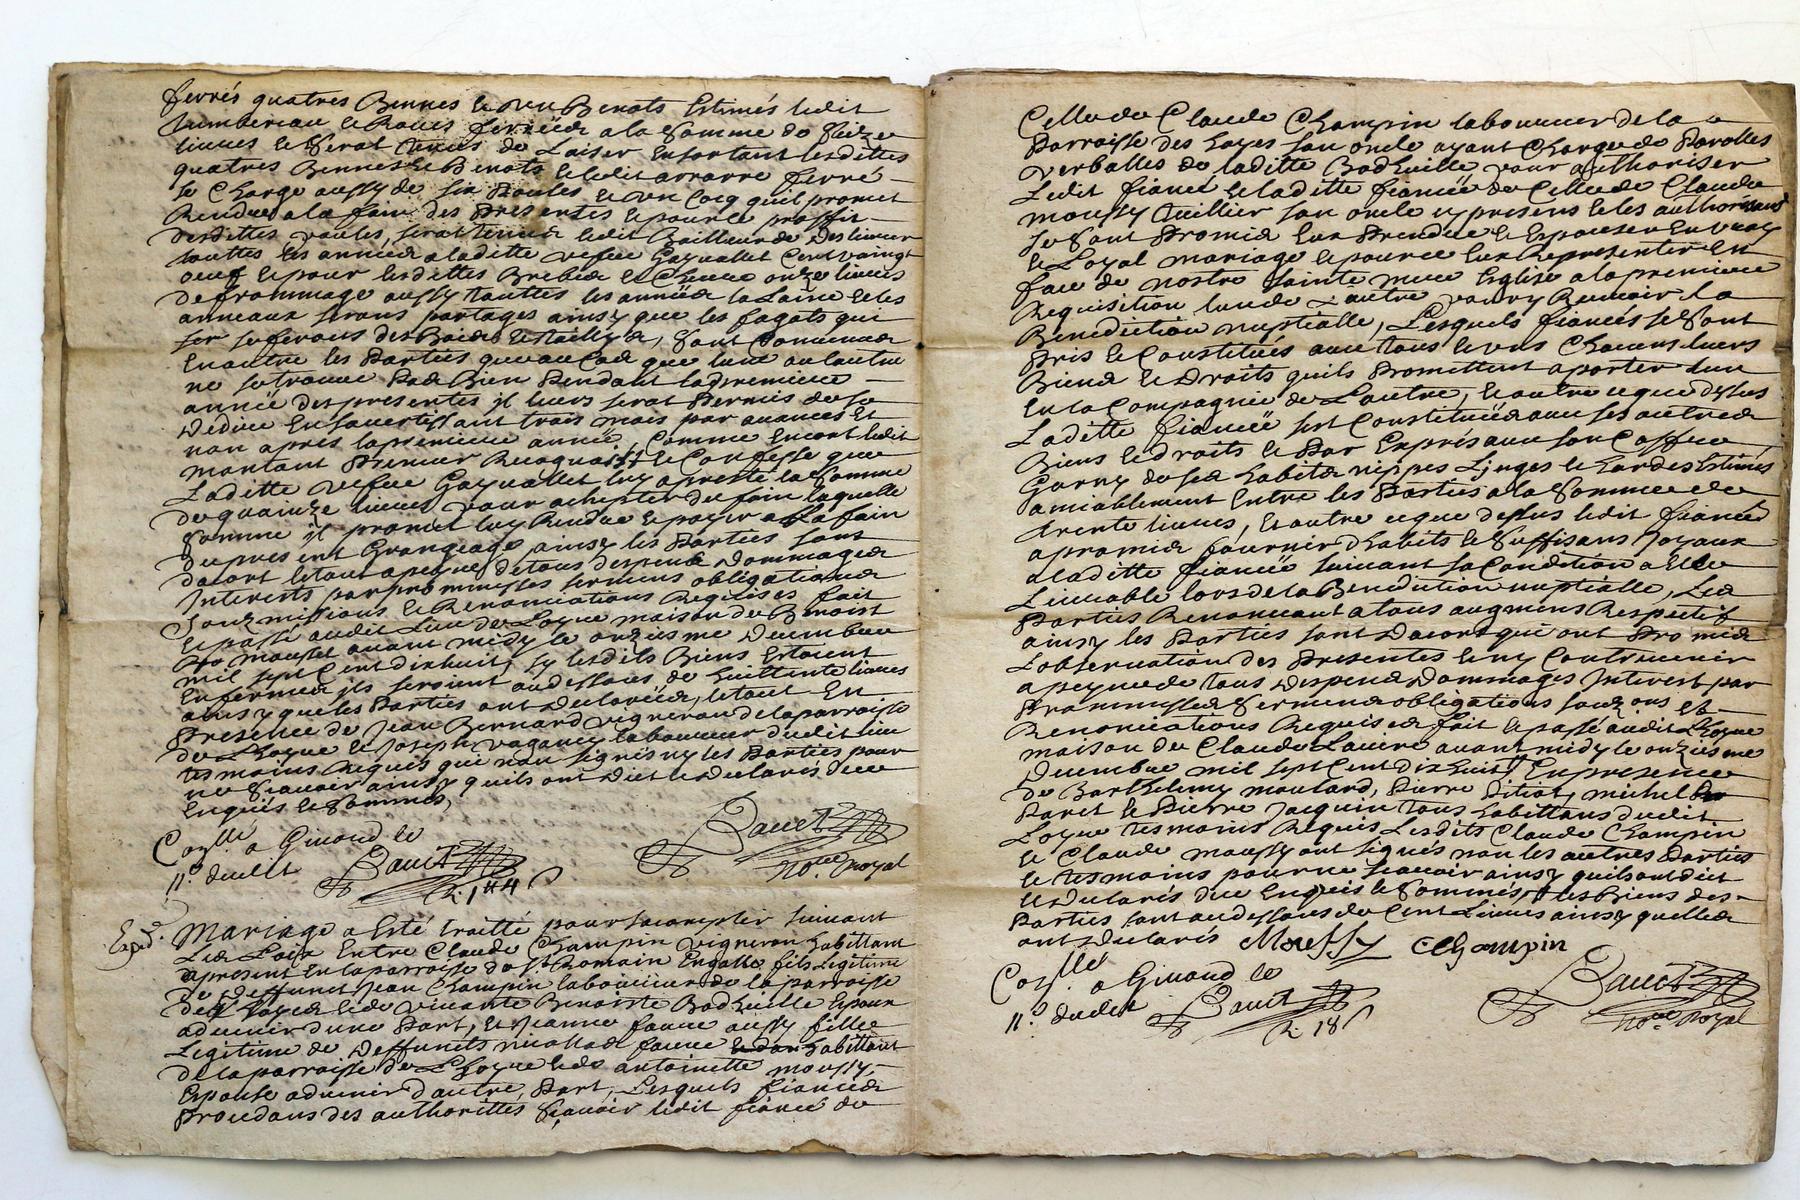 ferrés quatres Bennes et un Benots Estimés ledit
tumbereau et Roues ferrées a la somme de seize
livres et serat tenus de Laiser En sortant lesdittes
quatres Bennes et Benots et ledit arrarre ferré
se Charge aussy de six Poules et un Coq qu'il promet
Rendre a la fain des Presentes et pour le proffit
desdittes poules, serat tenus ledit Bailleur de des livrer
touttes les années a laditte vefue Gayuallet Cent vaingt
oeuf et pour lesdittes Brebis et Chevre onze livres
de frommage aussy touttes les années la Laine et les
anneaux serons partages ainsy que les fagots qui
ser se ferons des Bois et taillys, sont Convenus
En outre les Parties que au Cas que lune ou lautre
ne se trouve Pas Bien Pendant la premiere
année des presentes il leurs serat Permis de se
dedire En s'avertissant trois mois par avances Et
non apres la premiere année, Comme Encort ledit
montant Premier Recognoist et Confesse que
Laditte vefue Gayuallet luy a presté la somme
de quainze livres pour achepter du foin laquelle
somme il promet luy Rendre et payer a la fain
du present Grangeage ainsy les Parties sont
dacort le tout a peyne de tous despens Dommages
Interests par prommisses sermens obligations
Soubmissions et Renonciations Requises fait
et passé audit Lieu de Loyse maison de Benoist
avant midy le onziesme Decembre
mil sept Cent dix huit, sy lesdits Biens Estoient
En fermes ils seroient audessous de huittente livres
ainsy que les Parties ont declarées, le tout En
Presence de Jean Bernard vigneron de la parroisse
de Loyse et Joseph vagancy laboureur dudit lieu
tesmoins Requis qui non signés ny les Parties pour
ne sçavoir ainsy quils ont dict et declarés de ce
Enquis et Sommés,
Coll. a Givord le
11. dudit
Not. Royal
R. 1 4
Exped. Mariage a Esté traitté pour s'acomplir suivant
Les Loix Entre Claude Champin vigneron habittant
a present En la parroisse de St. Romain En galle fils Legitime
de deffunct Jean Champin laboureur de la parroisse
des hayes et de vivante Benoiste Badheuille Epoux
advenir d'une Part, et Jeanne faure aussy fille
Legitime de Deffuncts nicollas faure habittant
de la parroisse de Loyse et de antoinette moussy,
Epouse advenir d'autre Part, Lesquels fiancés
Procedans des authorittes sçavoir ledit fiancé de
Celle de Claude Champin laboureur de la
Parroisse des hayes son oncle ayant Charge de Parolles
verballes de laditte Badheuille pour authoriser
Ledit fiancé et laditte fiancée de Celle de Claude
moussy tuillier son oncle cy presens et les authorisans
se sont Promis Eux Prendre et Espouser En vray
et Loyal mariage et pource Eux Representer En
face de nostre Sainte mere Eglise a la premiere
Requisition lun de Lautre pour y Recevoir la
Benediction nuptialle, Lesquels fiancés se sont
Pris et Constitués avec tous et uns Chacuns leurs
Biens et Droits quils Promettent aporter lun
En la Compagnie de Lautre, et outre ce que dessus
Laditte fiancée sest Constituée avec ses autres
Biens et droits et Par Exprés avec son Coffre
Garny de ses habits nippes Linges et hardes Estimés
amiablement Entre les Parties a la Somme de
trente livres, et outre ce que dessus ledit fiancé
a promis fournir dhabits et Suffisans Joyaux
a laditte fiancée suivant sa Condition a Elle
Livrable lors de la Benediction nuptialle, Les
Parties Renonceant a tous augmens Respectif
ainsy les Parties sont Dacorts qui ont Promis
Lobservation des Presentes et ny Contrevenir
a peyne de tous Despens Dommages Interest par
Prommisses sermens obligations soubzons et
Renonciations Requises fait et passé audit Loyse
maison de Claude Laviere avant midy le onziesme
Decembre mil sept Cent dix huit, En presence
de Barthelemy moulard, Pierre ditiot, michel
Paret et Pierre Jacquin tous habittans dudit
Loyse tesmoins Requis Lesdits Claude Champin
et Claude moussy ont signés non les autres Parties
et tesmoins pour ne sçavoir ainsy quils ont dict
et declarés de ce Enquis et Sommés, les Biens des
Parties sont audessous de Cent Livres ainsy quelles
ont declarés Moussy CChampin
Coll. a Givord le
11. dudit
Not. Royal
R. 18